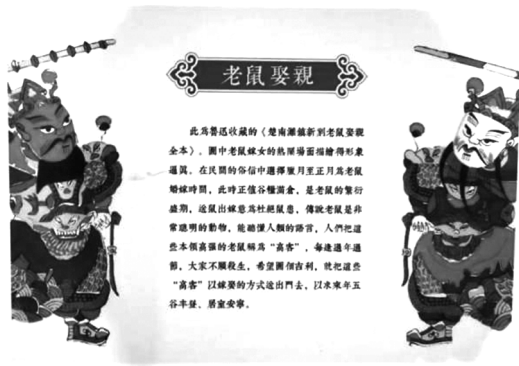 老鼠娶親
此爲魯迅收藏的《楚南灘鎮新刻老鼠娶親
全本》。圖中老鼠嫁女的熱鬧場面描繪得形象
逼真，在民間的俗信中選擇臘月至正月爲老鼠
婚嫁時間，此時正值谷糧滿倉，是老鼠的繁衍
盛期，送鼠出嫁意爲杜絕鼠患，傳說老鼠是非
常聰明的動物，能聽懂人類的語言，人們把這
些本領高强的老鼠稱爲“高客”，每逢過年過
節，大家不願殺生，希望圖個吉利，就把這些
“高客”以嫁娶的方式送出門去，以求來年五
谷豐登、居室安寧。